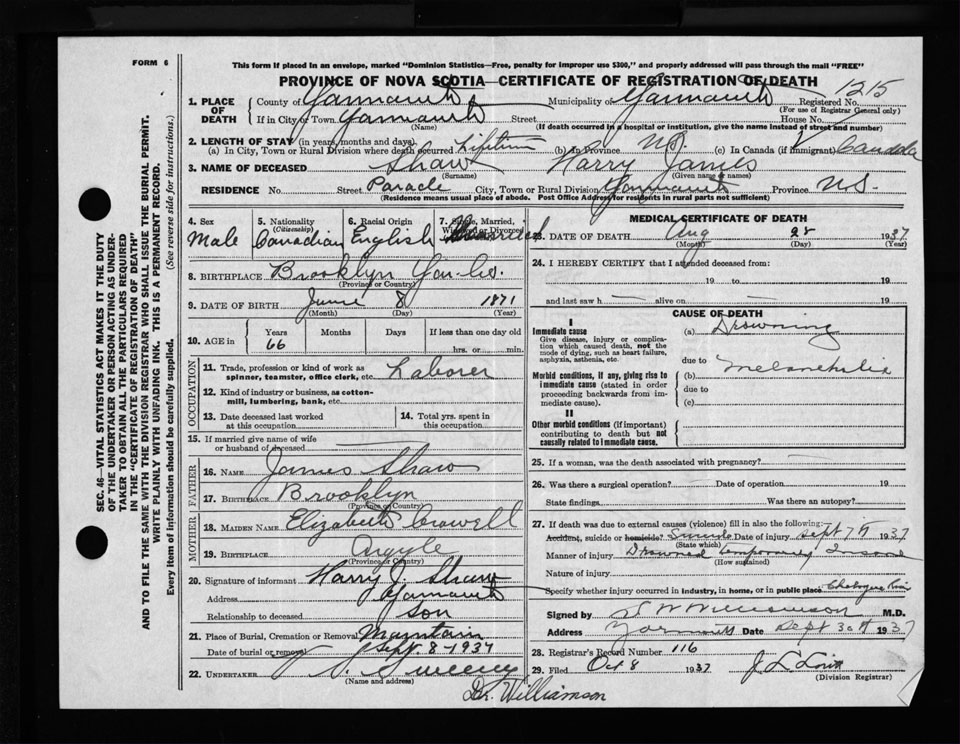 FORM 6
This form if placed in an envelope, marked "Dominion Statistics—Free, penalty for improper use $300," and properly addressed will pass through the mail "FREE"
PROVINCE OF NOVA SCOTIA—CERTIFICATE OF REGISTRATION OF DEATH
1215
1. PLACE OF DEATH County of Yarmouth Municipality of Yarmouth Registered No.
(For use of Registrar General only)
If in City or Town Yarmouth Street House No.
(Name) (If death occurred in a hospital or institution, give the name instead of street and number)
2. LENGTH OF STAY (in years, months and days).
(a) In City, Town or Rural Division where death occurred Lifetime (b) In Province N.S. (c) In Canada (if immigrant) Canada
3. NAME OF DECEASED Shaw Harry James
(Surname) (Given name or names)
RESIDENCE No. Street Parade City, Town or Rural Division Yarmouth Province N.S.
(Residence means usual place of abode. Post Office Address for residents in rural parts not sufficient)
4. Sex 5. Nationality (Citizenship) 6. Racial Origin 7. Single, Married, Widowed or Divorced
Male Canadian English Married
8. BIRTHPLACE Brooklyn Yar. Co.
(Province or Country)
9. DATE OF BIRTH June 8 1871
(Month) (Day) (Year)
10. AGE in Years Months Days If less than one day old
66 hrs. or min.
OCCUPATION
11. Trade, profession or kind of work as spinner, teamster, office clerk, etc. Laborer
12. Kind of industry or business, as cotton-mill, lumbering, bank, etc.
13. Date deceased last worked at this occupation 14. Total yrs. spent in this occupation
15. If married give name of wife or husband of deceased
FATHER
16. NAME James Shaw
17. BIRTHPLACE Brooklyn
(Province or Country)
MOTHER
18. MAIDEN NAME Elizabeth Crowell
19. BIRTHPLACE Argyle
(Province or Country)
20. Signature of informant Harry J. Shaw
Address Yarmouth
Relationship to deceased Son
21. Place of Burial, Cremation or Removal Mountain
Date of burial or removal Sept 8-1937
22. UNDERTAKER Sweeny
(Name and address)
Dr. Williamson
MEDICAL CERTIFICATE OF DEATH
23. DATE OF DEATH Aug 28 1937
(Month) (Day) (Year)
24. I HEREBY CERTIFY that I attended deceased from:
19 to 19
and last saw h alive on 19
CAUSE OF DEATH
I
Immediate cause (a) Drowning
Give disease, injury or complication which caused death, not the mode of dying, such as heart failure, asphyxia, asthenia, etc.
due to
Morbid conditions, if any, giving rise to immediate cause (stated in order proceeding backwards from immediate cause). (b) Melancholia
due to
(c)
II
Other morbid conditions (if important) contributing to death but not causally related to immediate cause.
25. If a woman, was the death associated with pregnancy?
26. Was there a surgical operation? Date of operation 19
State findings Was there an autopsy?
27. If death was due to external causes (violence) fill in also the following:
Accident, suicide or homicide? Suicide Date of injury Sept 7th 1937
(State which)
Manner of injury Drowned temporary Insane
(How sustained)
Nature of injury
Specify whether injury occurred in industry, in home, or in public place Chebogue
Signed by Williamson M.D.
Address Yarmouth Date Sept 30th 1937
28. Registrar's Record Number 116
29. Filed Oct 8 1937
(Division Registrar)
SEC. 46—VITAL STATISTICS ACT MAKES IT THE DUTY OF THE UNDERTAKER OR PERSON ACTING AS UNDERTAKER TO OBTAIN ALL THE PARTICULARS REQUIRED IN THE "CERTIFICATE OF REGISTRATION OF DEATH"
AND TO FILE THE SAME WITH THE DIVISION REGISTRAR WHO SHALL ISSUE THE BURIAL PERMIT.
WRITE PLAINLY WITH UNFADING INK. THIS IS A PERMANENT RECORD.
Every item of information should be carefully supplied. (See reverse side for instructions.)